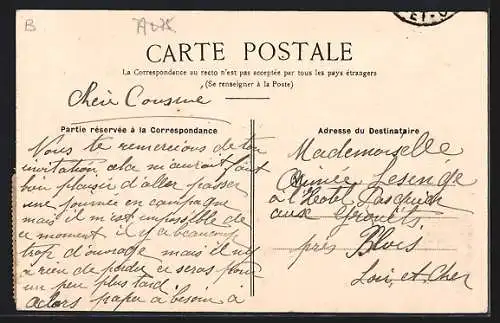 B
CARTE POSTALE
La Correspondance au recto n'est pas acceptée par tous les pays étrangers
(Se renseigner à la Poste)
Chère Cousine
Partie réservée à la Correspondance
Nous te remercions de ton
invitation cela m'aurait fait
bon plaisir d'aller passer
une journée en campagne
mais il m'est impossible de
ce moment il y a beaucoup
trop d'ouvrage mais il n'y
a rien de perdu ce seras pour
un peu plus tard
alors papa a besoin à
Adresse du Destinataire
Mademoiselle
Aimée
à l'Hôtel
aux
près Blois
Loir et Cher